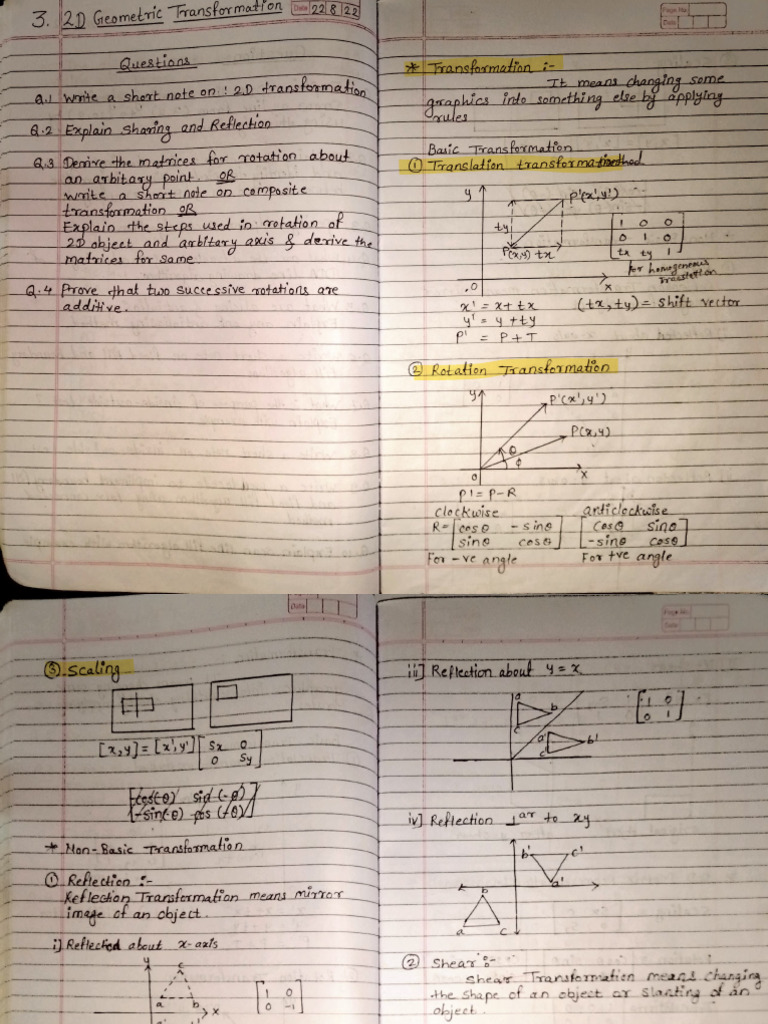 3. 2D Geometric Transformation
Date 22 8 22
Questions
Q.1 Write a short note on : 2D transformation
Q.2 Explain Sharing and Reflection
Q.3 Derive the matrices for rotation about
an arbitary point. OR
Write a short note on composite
transformation OR
Explain the steps used in rotation of
2D object and arbitary axis & derive the
matrices for same.
Q.4 Prove that two successive rotations are
additive.
Page No.
Date
* Transformation :-
It means changing some
graphics into something else by applying
rules
Basic Transformation
① Translation transformation method
y
P'(x',y')
ty
P(x,y) tx
.0
x
1 0 0
0 1 0
tx ty 1
for homogeneous
translation
x' = x + tx
(tx, ty) = Shift vector
y' = y + ty
P' = P + T
② Rotation Transformation
y
P'(x',y')
P(x,y)
θ
ϕ
0
x
P' = P - R
clockwise
anticlockwise
R = [cosθ -sinθ
sinθ cosθ]
[cosθ sinθ
-sinθ cosθ]
For -ve angle
For +ve angle
Date
③ Scaling
[x,y] = [x',y'] [Sx 0
0 Sy]
[cos(-θ) sin(-θ)
-sin(-θ) cos(-θ)]
* Non-Basic Transformation
① Reflection :-
Reflection Transformation means mirror
image of an object.
i] Reflected about x-axis
y
c
a
b
x
[1 0
0 -1]
Page No.
Date
iii] Reflection about y = x
a
b
c
a'
b'
c
[1 0
0 1]
iv] Reflection ⊥ar to xy
b'
c'
a'
b
a
c
② Shear :-
Shear Transformation means changing
the shape of an object or slanting of an
object.